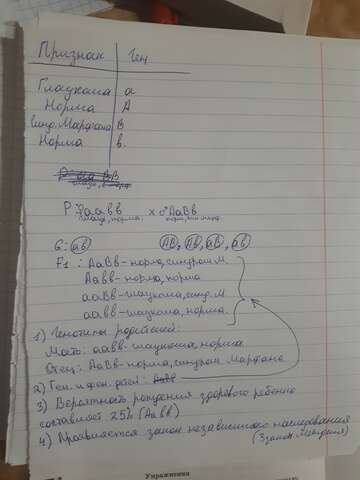 Признак | Ген
Глаукома | а
Норма | А
Синд. Марфана | В
Норма | в.
P ♀ аавв x ♂ АаВв
глауком, норма. норм, син. мар.
G: ав АВ, Ав, аВ, ав
F1: АаВв - норма, синдром М.
Аавв - норма, норма
ааВв - глаукома, синд. М.
аавв - глаукома, норма.
1) Генотипы родителей:
Мать: аавв - глаукома, норма
Отец: АаВв - норма, синдром Марфана
2) Ген. и фен. детей:
3) Вероятность рождения здорового ребенка
составляет 25% (Аавв)
4) Проявляется закон независимого наследования
(3 закон Менделя)
Упражнения